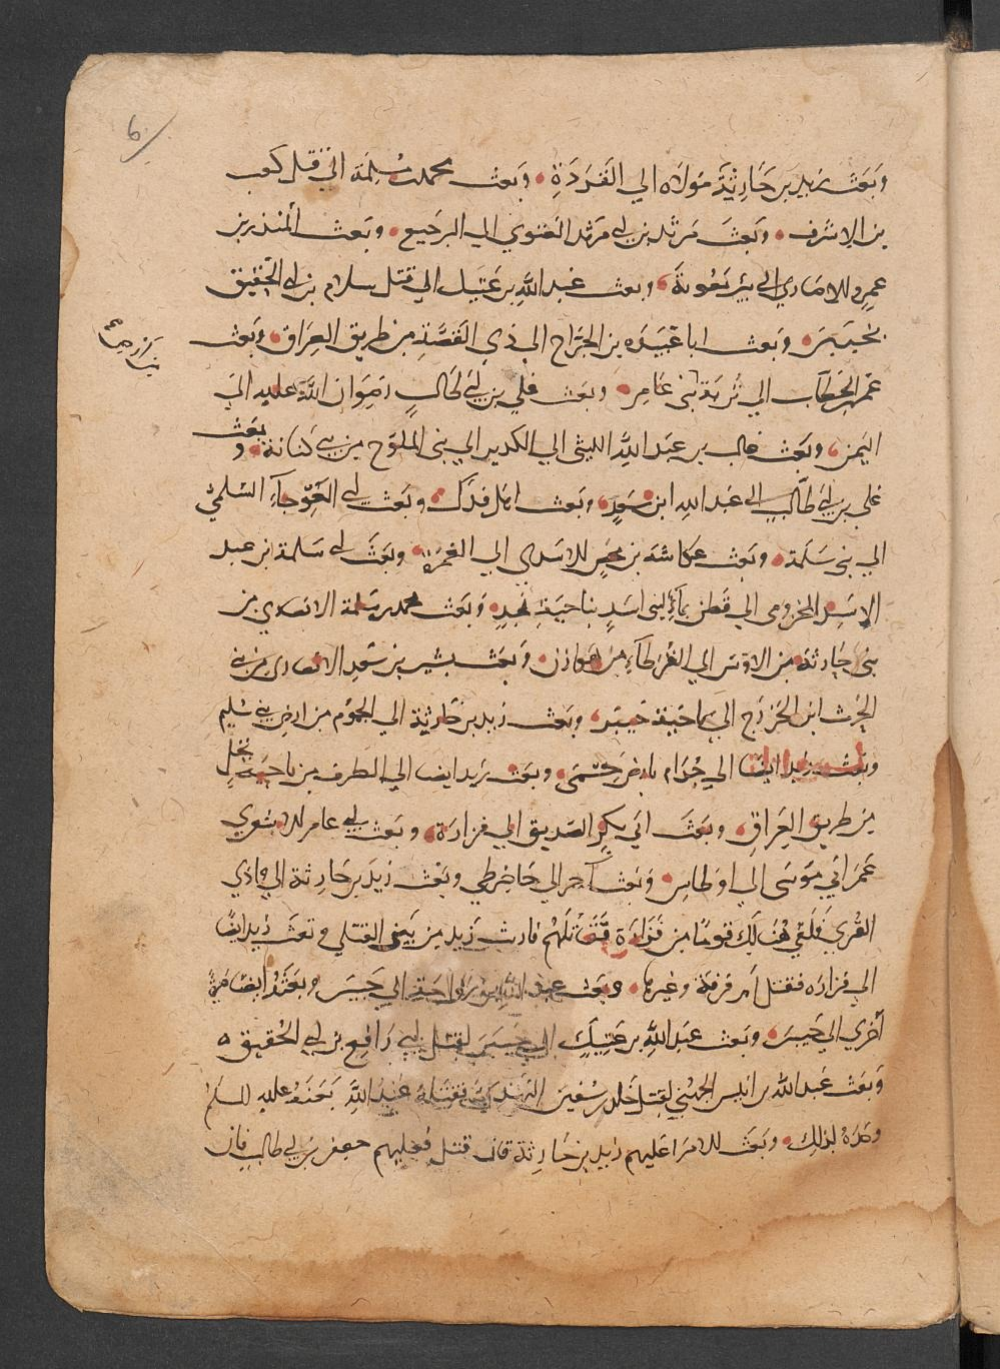 6
وبعث زيد بن حارثة مولاه الي القردة وبعث محمد بن مسلمة الي قتل كعب
بن الاشرف وبعث مرثد بن ابي مرثد الغنوي الي الرجيع وبعث المنذر بن
عمرو الانصاري الي بئر معونة وبعث عبد الله بن عتيك الي قتل سلام بن ابي الحقيق
بخيبر وبعث ابا عبيده بن الجراح الي ذي القصة من طريق العراق وبعث
عمر بن الخطاب الي تربة بني عامر وبعث علي بن ابي طالب رضوان الله عليه الي
اليمن وبعث غالب بن عبد الله الليثي الي الكديد الي بني الملوح من بني كنانة وبعث
علي بن ابي طالب الي عبد الله ابن سعد وبعث اهل فدك وبعث ابي العوجاء السلمي
الي بني سلمة وبعث عكاشة بن محصن الاسدي الي الغمرة وبعث ابي سلمة بن عبد
الاسد المخزومي الي قطن ماء لبني اسد بناحية نجد وبعث محمد بن سلمة الانصاري من
بني حارثة من الاوس الي القرطاء من هوازن وبعث بشير بن سعد الانصاري من بني
الحرث ابن الخزرج الي ناحية خيبر وبعث زيد بن حارثة الي الجموم من ارض بني سليم
وبعث زيد ايضا الي جذام بارض حسمى وبعث زيد ايضا الي الطرف من ناحية نخل
من طريق العراق وبعث ابي بكر الصديق الي فزارة وبعث ابي عامر الاشعري
عم ابي موسى الي اوطاس وبعث آخر الي حاضر طي وبعث زيد بن حارثة الي وادي
القري فلقي هنالك قوما من فزارة فقاتلهم فارتث زيد من بين القتلي وبعث زيد ايضا
الي فزاره فقتل ام قرفة وغيرها وبعث عبد الله بن رواحة الي خيبر وبعثه ايضا مرة
أخري الي خيبر وبعث عبد الله بن عتيك الي خيبر لقتل ابي رافع بن ابي الحقيق
وبعث عبد الله بن انيس الجهني لقتل خلد بن سفين الهذلي فقتله عبد الله بعثه عليه السلم
وحده لذلك وبعث الامرا عليهم زيد بن حارثة فان قتل فعليهم جعفر بن ابي طالب فان